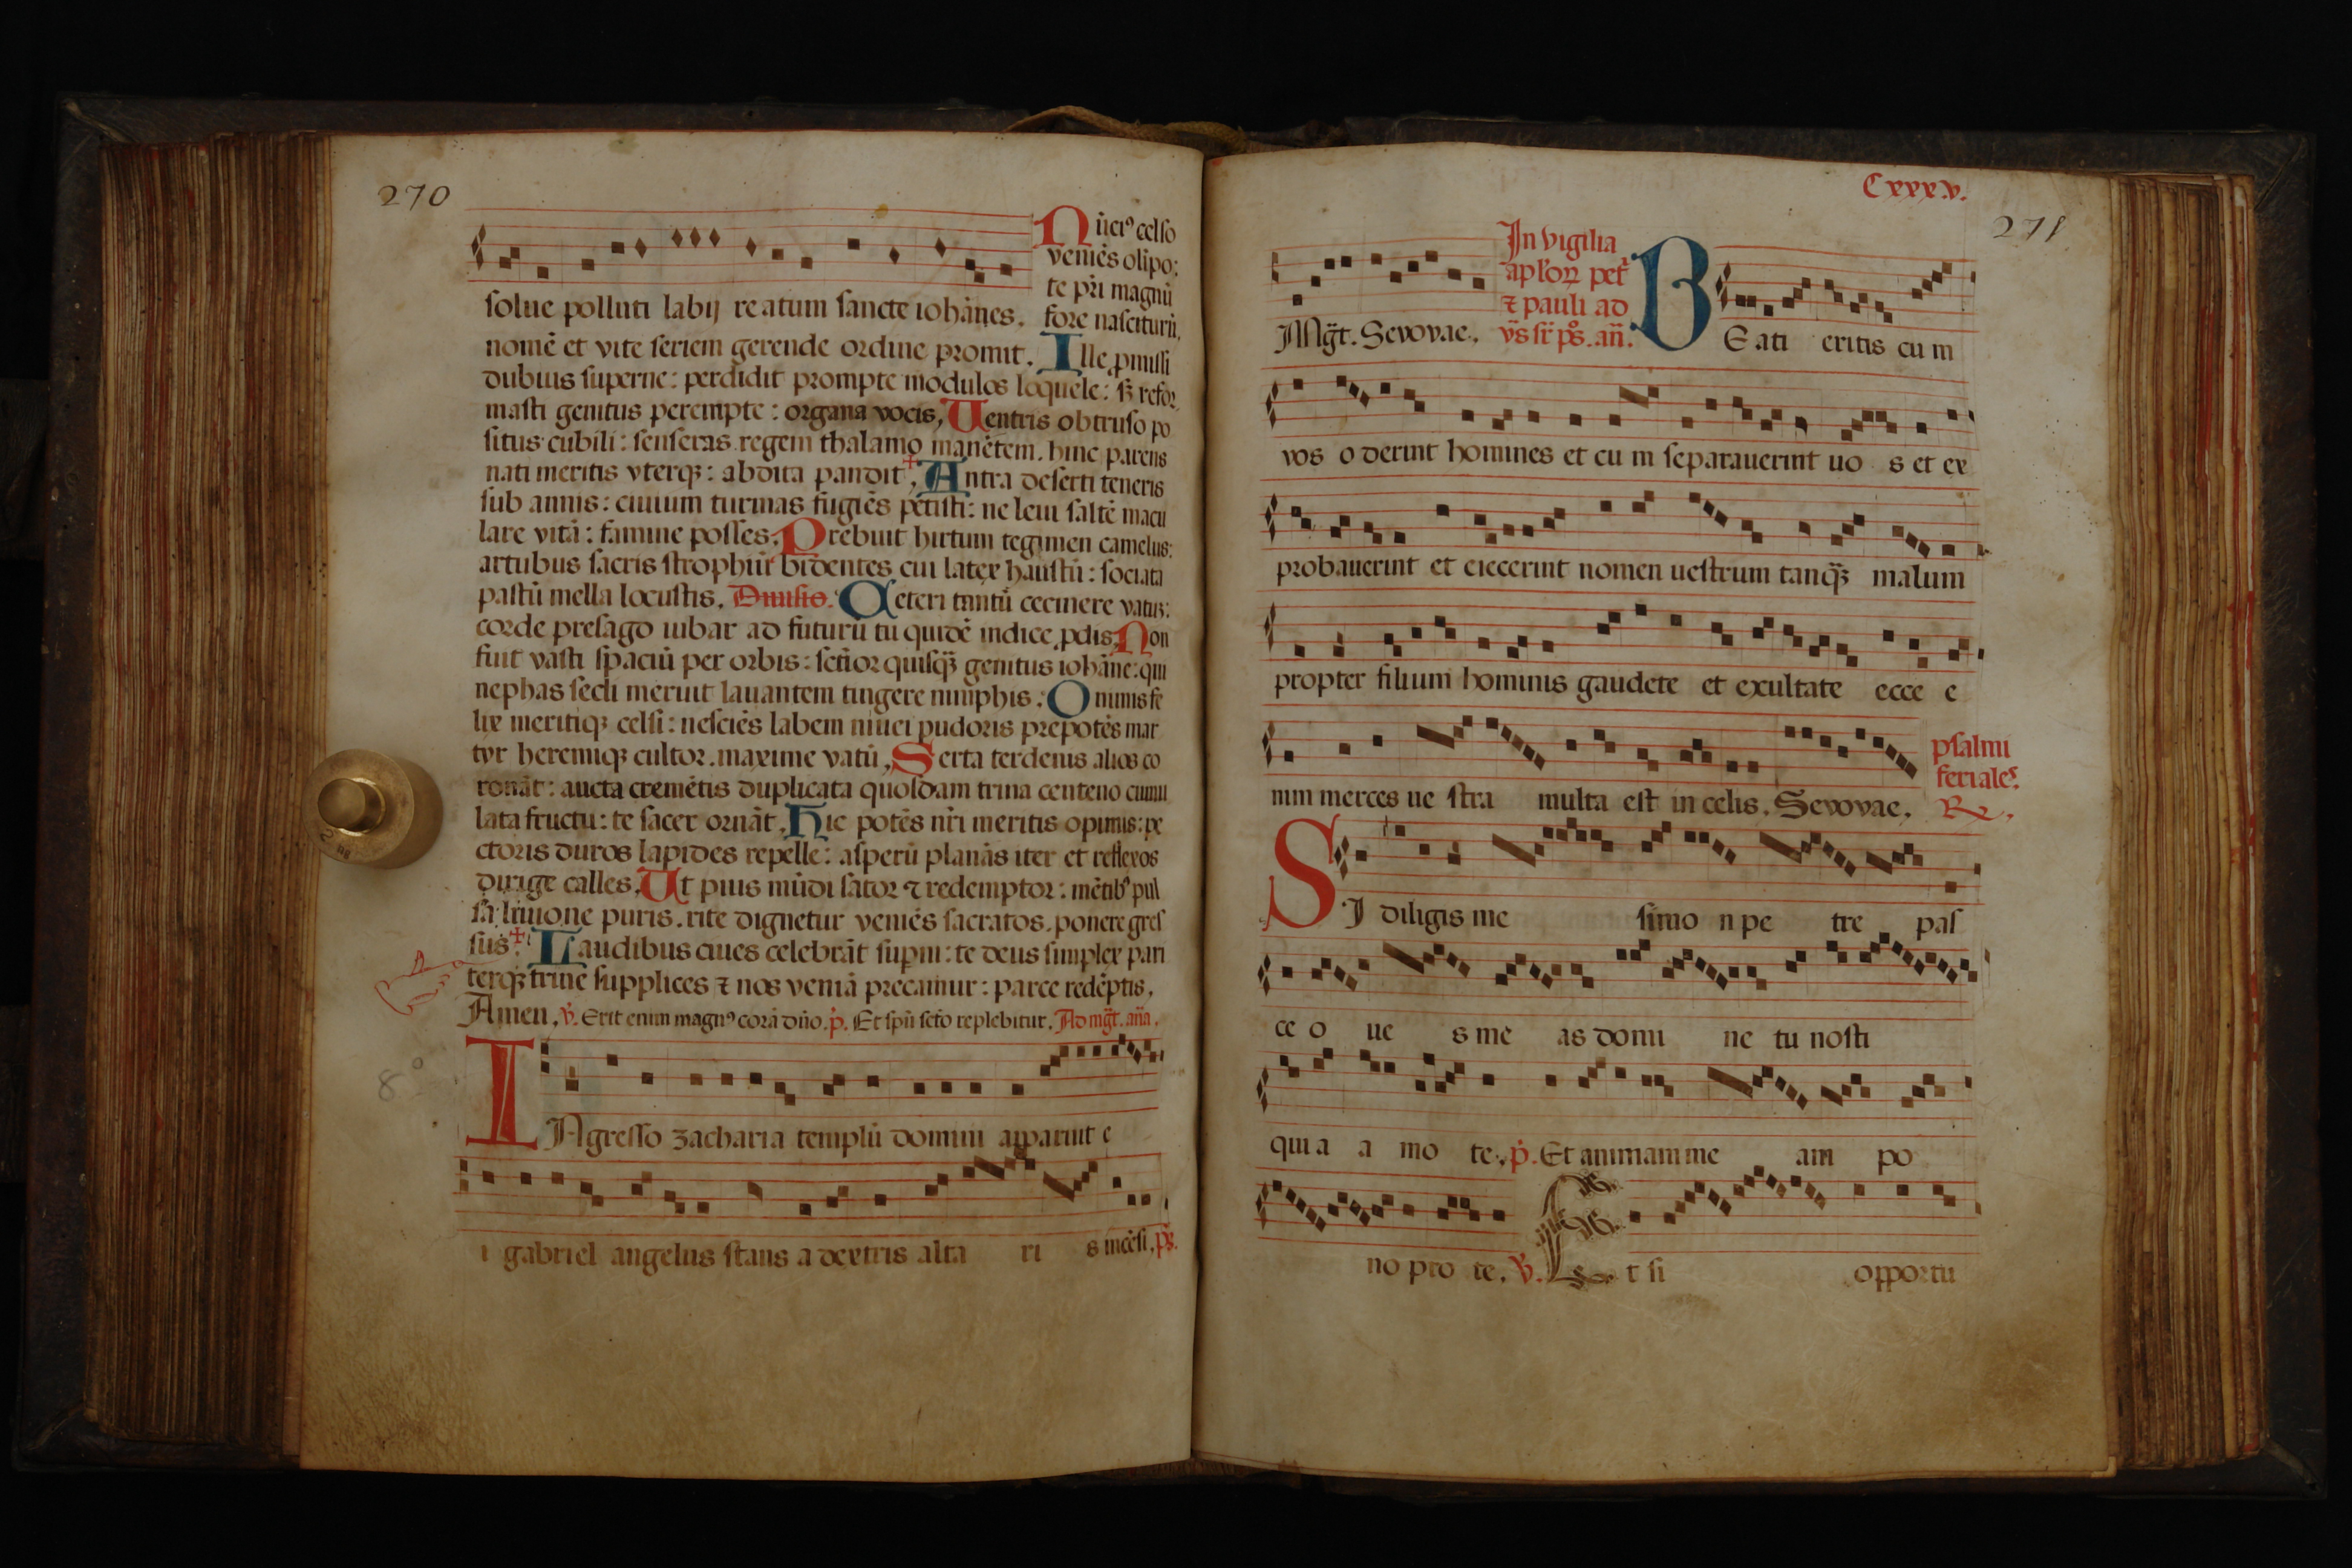 270
Nūciꝰ celſo
veniēs olīpo:
te pr̄i magnū
ſolue polluti labij reatum ſancte iohānes. fore naſciturū,
nomē et vite ſeriem gerende ordine promit. Ille ꝓmiſſi
dubius ſuperne: perdidit prompte modulos loquele: ſꝫ refor
maſti genitus perempte: organa vocis, Uentris obtruſo po
ſitus cubili: ſenſeras regem thalamo manētem. hinc parens
nati meritis vterqꝫ: abdita pandit. Antra deſerti teneris
ſub annis: ciuium turmas fugiēs petiſti: ne leui ſaltē macu
lare vitā: famine poſſes. Prebuit hirtum tegimen camelus:
artubus ſacris ſtrophiū bidentes cui latex hauſtū: ſociata
paſtū mella locuſtis. Diuiſio. Ceteri tantū cecinere vatus:
corde preſago iubar ad futurū tu quidē indice ꝓdis, Non
fuit vaſti ſpaciū per orbis: ſctīor quiſqꝫ genitus iohāne: qui
nephas ſecli meruit lauantem tingere nimphis. O nimis fe
lix meritiqꝫ celſi: neſciēs labem niuei pudoris prepotēs mar
tyr heremiqꝫ cultor. maxime vatū, Serta terdenis alios co
ronāt: aucta cremētis duplicata quoſdam trina centeno cumu
lata fructu: te ſacer ornāt. Hic potēs nr̄i meritis opimis: pe
ctoris duros lapides repelle: aſperū planās iter et reflexos
dirige calles. Ut pius mūdi ſator ⁊ redemptor: mētibꝰ pul
ſa liuione puris. rite dignetur veniēs ſacratos. ponere greſ
ſus. Laudibus ciues celebrāt ſupni: te deus ſimplex pari
terqꝫ trine ſupplices ⁊ nos veniā precamur: parce redēptis,
Amen. ℣. Erit enim magnꝰ corā dn̄o. p̄. Et ſpū ſcto replebitur. Ad mḡt. an̄a.
INgreſſo zacharia templū domini apparuit e
i gabriel angelus ſtans a dextris alta ri s incēſi. pꝫ.
Cxxx.v.
271
In vigilia
apl̄oꝝ pet̄
⁊ pauli ad
Mḡt. Sevovae. v̄s ſr̄ pꝫ. an̄.
BEati eritis cu m
vos o derint homines et cu m ſeparauerint uo s et ex
probauerint et eiecerint nomen ueſtrum tanqꝫ malum
propter filium hominis gaudete et exultate ecce e
nim merces ue ſtra multa eſt in celis. Sevovae.
pſalmi
feriales.
℟.
SI diligis me ſimo n pe tre paſ
ce o ue s me as domi ne tu noſti
qui a a mo te. p̄. Et animam me am po
no pro te. ℣. Et ſi opportu